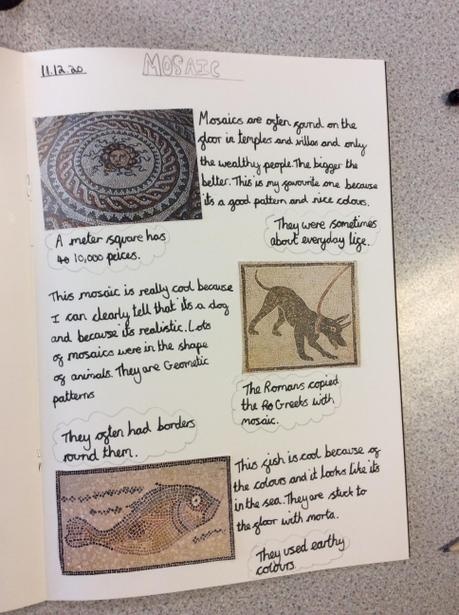 11.12.20
MOSAIC
Mosaics are often found on the
floor in temples and villas and only
the wealthy people. The bigger the
better. This is my favourite one because
its a good pattern and nice colours.
They were sometimes
about everyday life.
A meter square has
10,000 peices.
This mosaic is really cool because
I can clearly tell that its a dog
and because its realistic. Lots
of mosaics were in the shape
of animals. They are Geometic
patterns
The Romans copied
the Greeks with
mosaic.
They often had borders
round them.
This fish is cool because of
the colours and it looks like its
in the sea. They are stuck to
the floor with morta.
They used earthy
colours.